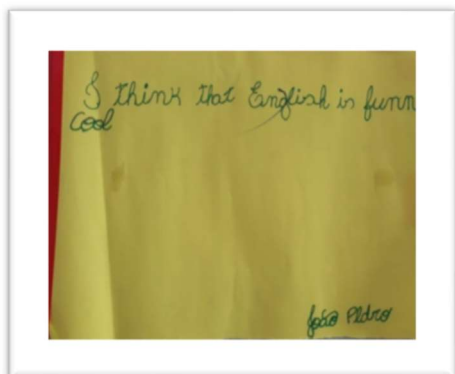 I think that English is funn
Cool
João Pedro